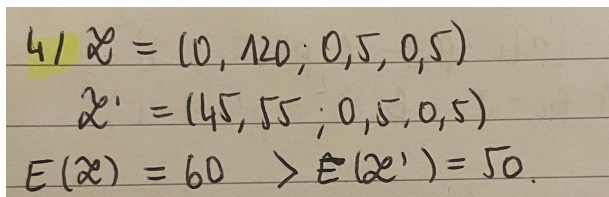 4/ ℒ = (0, 120 ; 0,5, 0,5)
ℒ' = (45, 55 ; 0,5, 0,5)
E(ℒ) = 60 > E(ℒ') = 50.